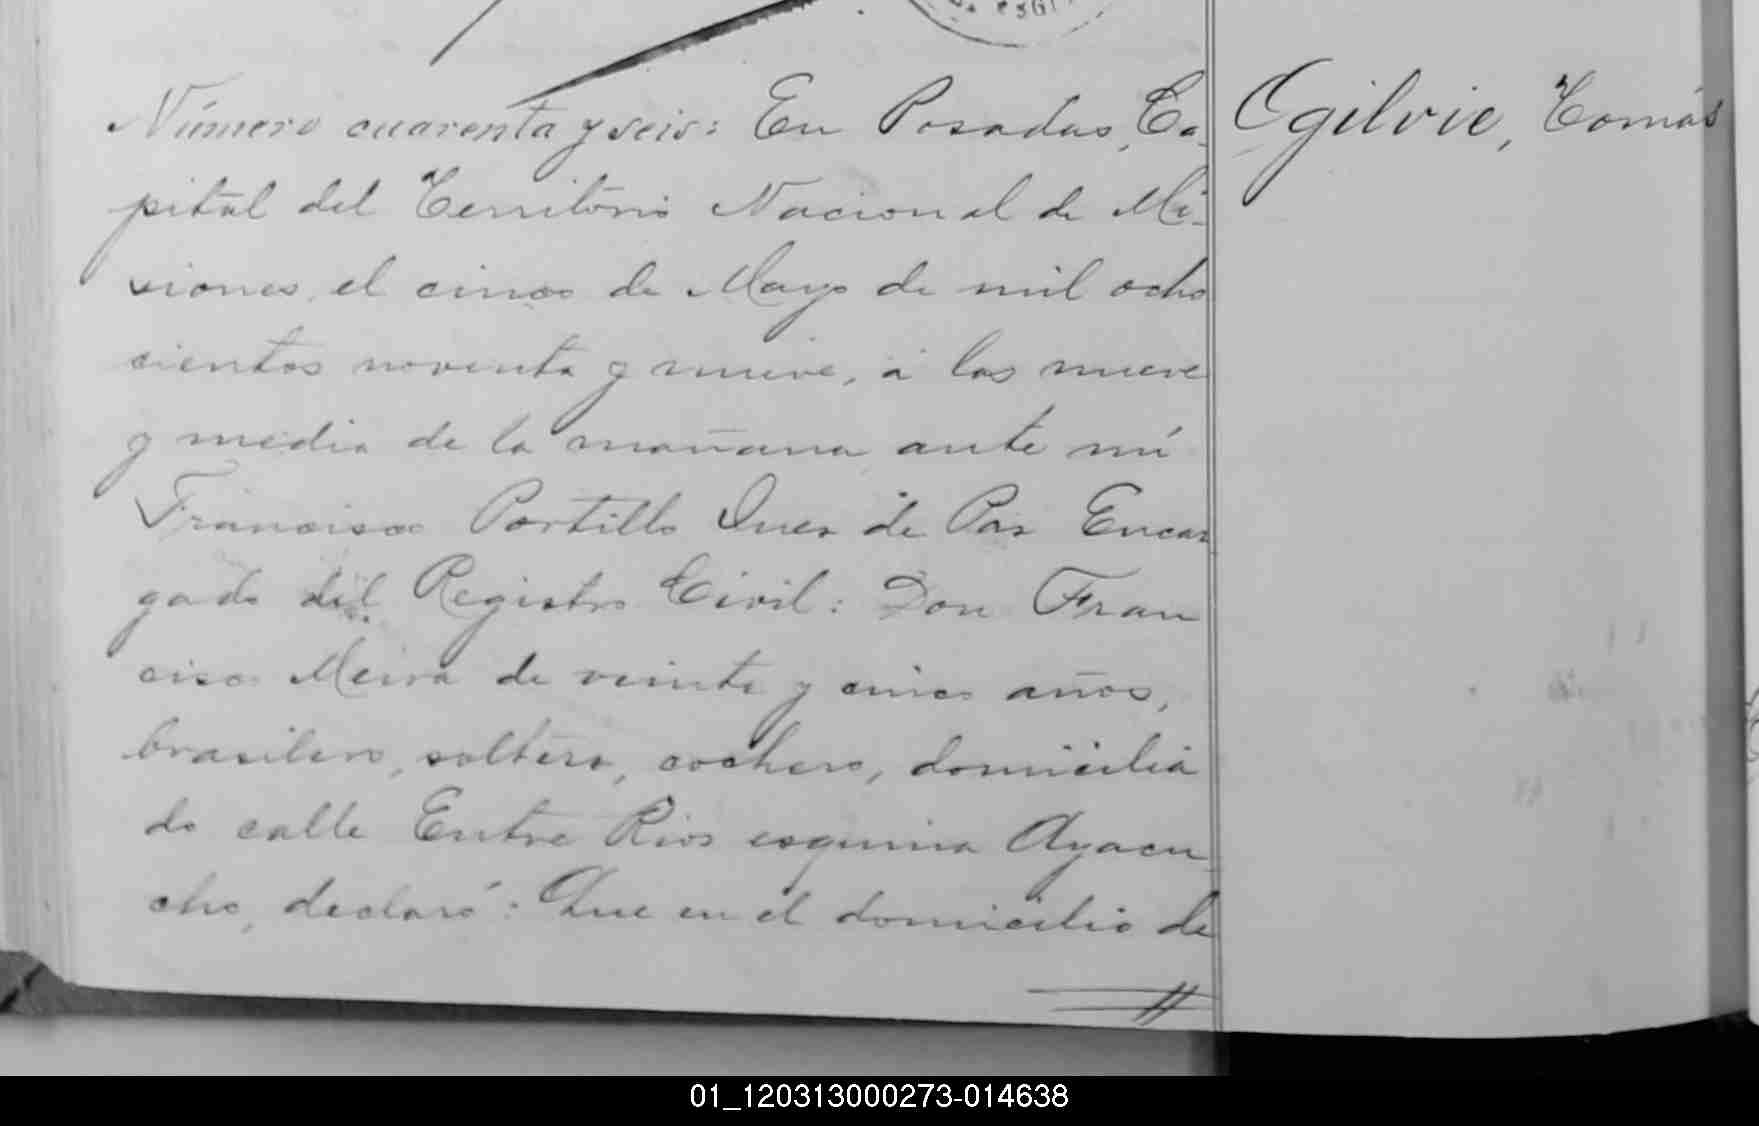 Número cuarenta y seis: En Posadas, Ca-
pital del Territorio Nacional de Mi-
siones, el cinco de Mayo de mil ocho
cientos noventa y nueve, á las nueve
y media de la mañana, ante mí
Francisco Portillo Juez de Paz Encar
gado del Registro Civil: Don Fran
cisco Meira de veinte y cinco años,
brasilero, soltero, cochero, domicilia
do calle Entre Rios esquina Ayacu-
cho, declaró: Que en el domicilio de
Ogilvie, Tomás
01_120313000273-014638